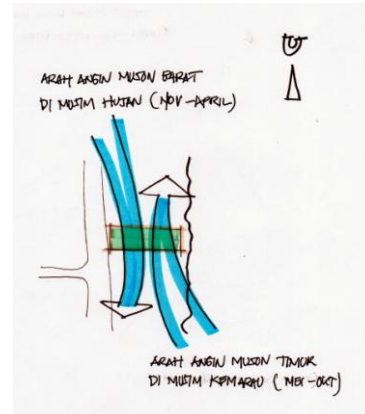 U
ARAH ANGIN MUSON BARAT
DI MUSIM HUJAN (NOV-APRIL)
ARAH ANGIN MUSON TIMUR
DI MUSIM KEMARAU (MEI-OKT)